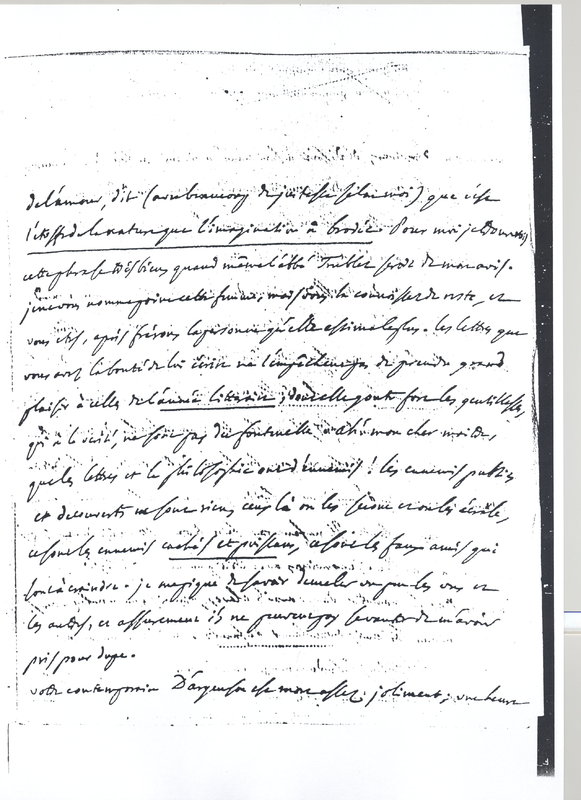 de l'amour, dit (avec beaucoup de justesse selon moi) que c'est
l'étoffe de la nature que l'imagination a brodée. Pour moi je
cette phrase très bien quand même l'abbé Trublet seroit de mon avis.
je ne vous nomme point cette femme, mais vous la connoissez de reste, et
vous etes, après frérons la personne qu'elle estime le plus. les lettres que
vous avez la bonté de lui écrire ne l'empêchent pas de prendre grand
plaisir à celles de l'année litteraire, dont elle goute fort les gentillesses,
qui à la vérité, ne sont pas du fontenelle. ah! mon cher maitre,
que les lettres et la philosophie ont d'ennemis! les ennemis publics
et decouverts ne sont rien; ceux là on les secoue et on les écrase,
ce sont les ennemis cachés et puissans, ce sont les faux amis qui
sont à craindre. je me pique de savoir demeler un peu les uns et
les autres, et assurement ils ne peuvent pas se vanter de m'avoir
pris pour dupe.
votre contemporain D'argenson est mort assez joliment; une heure